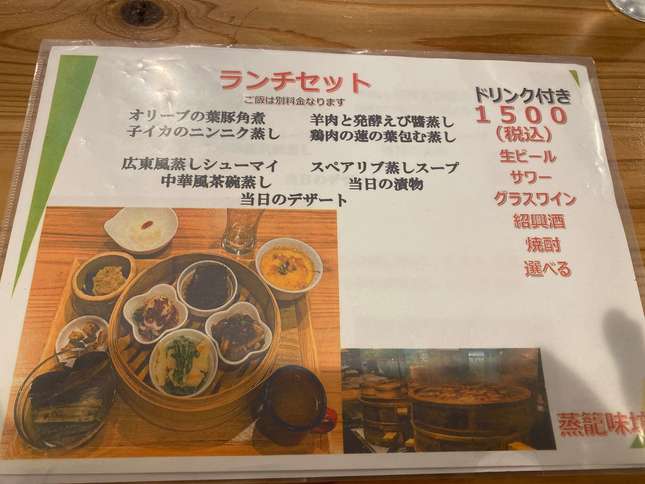 ランチセット
ご飯は別料金なります
オリーブの葉豚角煮 羊肉と発酵えび醬蒸し
子イカのニンニク蒸し 鶏肉の蓮の葉包む蒸し
広東風蒸しシューマイ スペアリブ蒸しスープ
中華風茶碗蒸し 当日の漬物
当日のデザート
ドリンク付き
１５００
（税込）
生ビール
サワー
グラスワイン
紹興酒
焼酎
選べる
蒸籠味坊